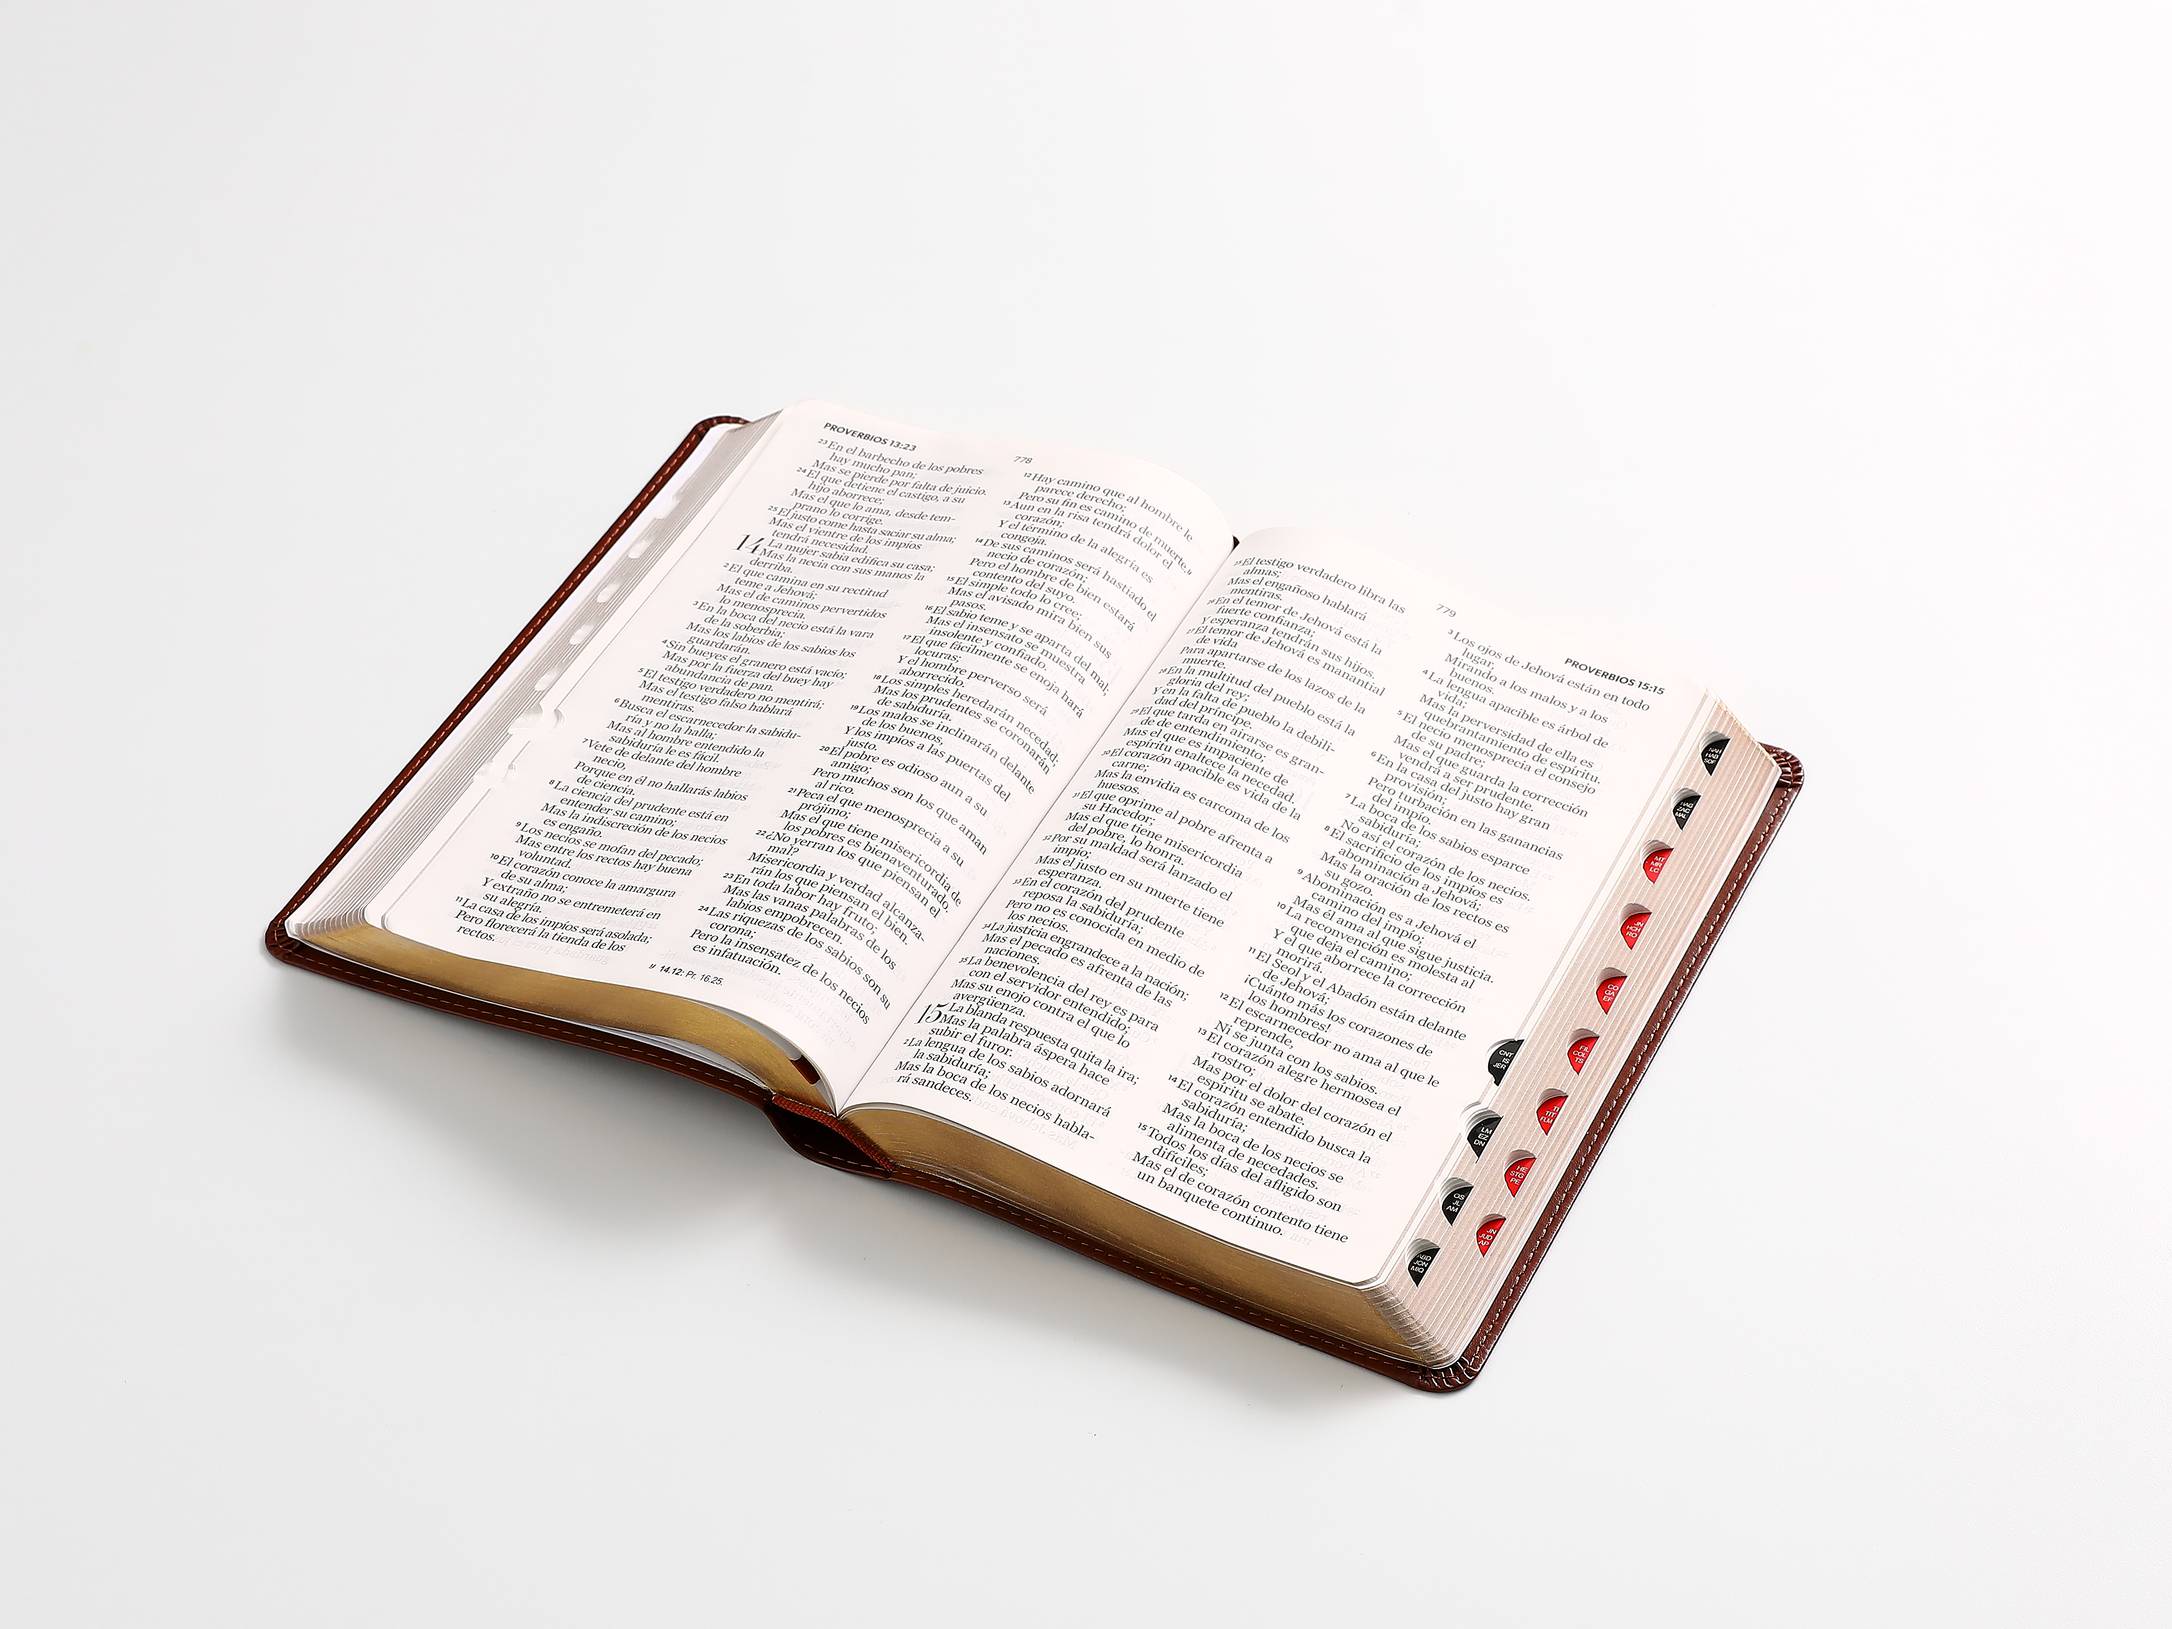 PROVERBIOS 13:23
778
23 En el barbecho de los pobres
hay mucho pan;
Mas se pierde por falta de juicio.
24 El que detiene el castigo, a su
hijo aborrece;
Mas el que lo ama, desde tem-
prano lo corrige.
25 El justo come hasta saciar su alma;
Mas el vientre de los impíos
tendrá necesidad.
14 La mujer sabia edifica su casa;
Mas la necia con sus manos la
derriba.
2 El que camina en su rectitud
teme a Jehová;
Mas el de caminos pervertidos
lo menosprecia.
3 En la boca del necio está la vara
de la soberbia;
Mas los labios de los sabios los
guardarán.
4 Sin bueyes el granero está vacío;
Mas por la fuerza del buey hay
abundancia de pan.
5 El testigo verdadero no mentirá;
Mas el testigo falso hablará
mentiras.
6 Busca el escarnecedor la sabidu-
ría y no la halla;
Mas al hombre entendido la
sabiduría le es fácil.
7 Vete de delante del hombre
necio,
Porque en él no hallarás labios
de ciencia.
8 La ciencia del prudente está en
entender su camino;
Mas la indiscreción de los necios
es engaño.
9 Los necios se mofan del pecado;
Mas entre los rectos hay buena
voluntad.
10 El corazón conoce la amargura
de su alma;
Y extraño no se entremeterá en
su alegría.
11 La casa de los impíos será asolada;
Pero florecerá la tienda de los
rectos.
12 Hay camino que al hombre le
parece derecho;
Pero su fin es camino de muerte.
13 Aun en la risa tendrá dolor el
corazón;
Y el término de la alegría es
congoja.
14 De sus caminos será hastiado el
necio de corazón;
Pero el hombre de bien estará
contento del suyo.
15 El simple todo lo cree;
Mas el avisado mira bien sus
pasos.
16 El sabio teme y se aparta del mal;
Mas el insensato se muestra
insolente y confiado.
17 El que fácilmente se enoja hará
locuras;
Y el hombre perverso será
aborrecido.
18 Los simples heredarán necedad;
Mas los prudentes se coronarán
de sabiduría.
19 Los malos se inclinarán delante
de los buenos,
Y los impíos a las puertas del
justo.
20 El pobre es odioso aun a su
amigo;
Pero muchos son los que aman
al rico.
21 Peca el que menosprecia a su
prójimo;
Mas el que tiene misericordia de
los pobres es bienaventurado.
22 ¿No yerran los que piensan el
mal?
Misericordia y verdad alcanza-
rán los que piensan el bien.
23 En toda labor hay fruto;
Mas las vanas palabras de los
labios empobrecen.
24 Las riquezas de los sabios son su
corona;
Pero la insensatez de los necios
es infatuación.
14.12: Pr. 16.25.
779
PROVERBIOS 15:15
25 El testigo verdadero libra las
almas;
Mas el engañoso hablará
mentiras.
26 En el temor de Jehová está la
fuerte confianza;
Y esperanza tendrán sus hijos.
27 El temor de Jehová es manantial
de vida
Para apartarse de los lazos de la
muerte.
28 En la multitud del pueblo está la
gloria del rey;
Y en la falta de pueblo la debili-
dad del príncipe.
29 El que tarda en airarse es gran-
de de entendimiento;
Mas el que es impaciente de
espíritu enaltece la necedad.
30 El corazón apacible es vida de la
carne;
Mas la envidia es carcoma de los
huesos.
31 El que oprime al pobre afrenta a
su Hacedor;
Mas el que tiene misericordia
del pobre, lo honra.
32 Por su maldad será lanzado el
impío;
Mas el justo en su muerte tiene
esperanza.
33 En el corazón del prudente
reposa la sabiduría;
Pero no es conocida en medio de
los necios.
34 La justicia engrandece a la nación;
Mas el pecado es afrenta de las
naciones.
35 La benevolencia del rey es para
con el servidor entendido;
Mas su enojo contra el que lo
avergüenza.
15 La blanda respuesta quita la ira;
Mas la palabra áspera hace
subir el furor.
2 La lengua de los sabios adornará
la sabiduría;
Mas la boca de los necios habla-
rá sandeces.
3 Los ojos de Jehová están en todo
lugar,
Mirando a los malos y a los
buenos.
4 La lengua apacible es árbol de
vida;
Mas la perversidad de ella es
quebrantamiento de espíritu.
5 El necio menosprecia el consejo
de su padre;
Mas el que guarda la corrección
vendrá a ser prudente.
6 En la casa del justo hay gran
provisión;
Pero turbación en las ganancias
del impío.
7 La boca de los sabios esparce
sabiduría;
No así el corazón de los necios.
8 El sacrificio de los impíos es
abominación a Jehová;
Mas la oración de los rectos es
su gozo.
9 Abominación es a Jehová el
camino del impío;
Mas él ama al que sigue justicia.
10 La reconvención es molesta al
que deja el camino;
Y el que aborrece la corrección
morirá.
11 El Seol y el Abadón están delante
de Jehová;
¡Cuánto más los corazones de
los hombres!
12 El escarnecedor no ama al que le
reprende,
Ni se junta con los sabios.
13 El corazón alegre hermosea el
rostro;
Mas por el dolor del corazón el
espíritu se abate.
14 El corazón entendido busca la
sabiduría;
Mas la boca de los necios se
alimenta de necedades.
15 Todos los días del afligido son
difíciles;
Mas el de corazón contento tiene
un banquete continuo.
NAH
HAB
SOF
HAG
ZAC
MAL
MT
MR
LC
JN
HCH
RO
CO
GA
EF
FIL
COL
TS
TI
TIT
FLM
HE
STG
PE
JN
JUD
AP
CNT
IS
JER
LM
EZ
DN
OS
JL
AM
ABD
JON
MIQ